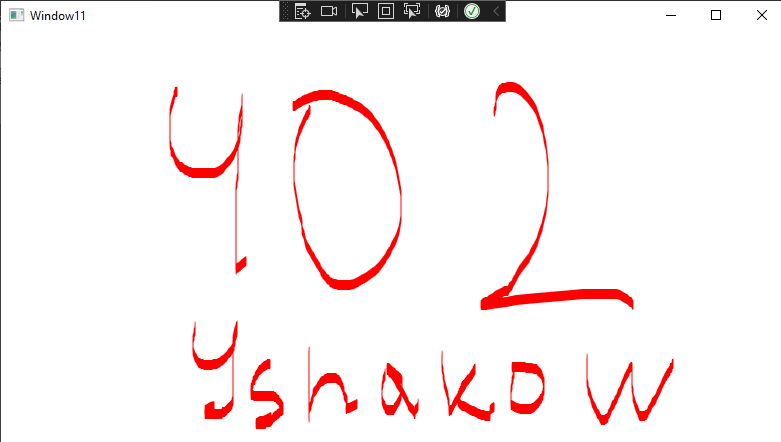 Window11
402
Yshakow